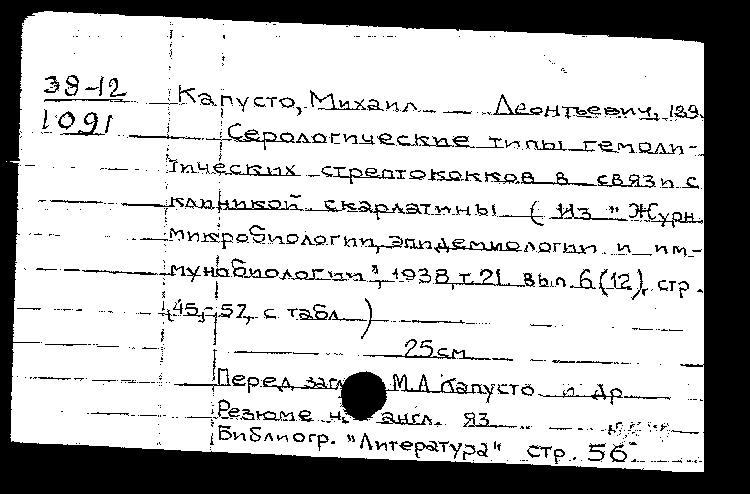 38-12
1091
Капусто, Михаил Леонтьевич, 189
Серологические типы гемоли-
тических стрептококков в связи с
клиникой скарлатины (Из "Журн.
микробиологии, эпидемиологии и им-
мунобиологии", 1938, т. 21. вып. 6(12), стр.
45-57, с табл.)
25см
Перед загл. М.Л. Капусто и др
Резюме н. англ. яз
Библиогр. "Литература" стр. 56.